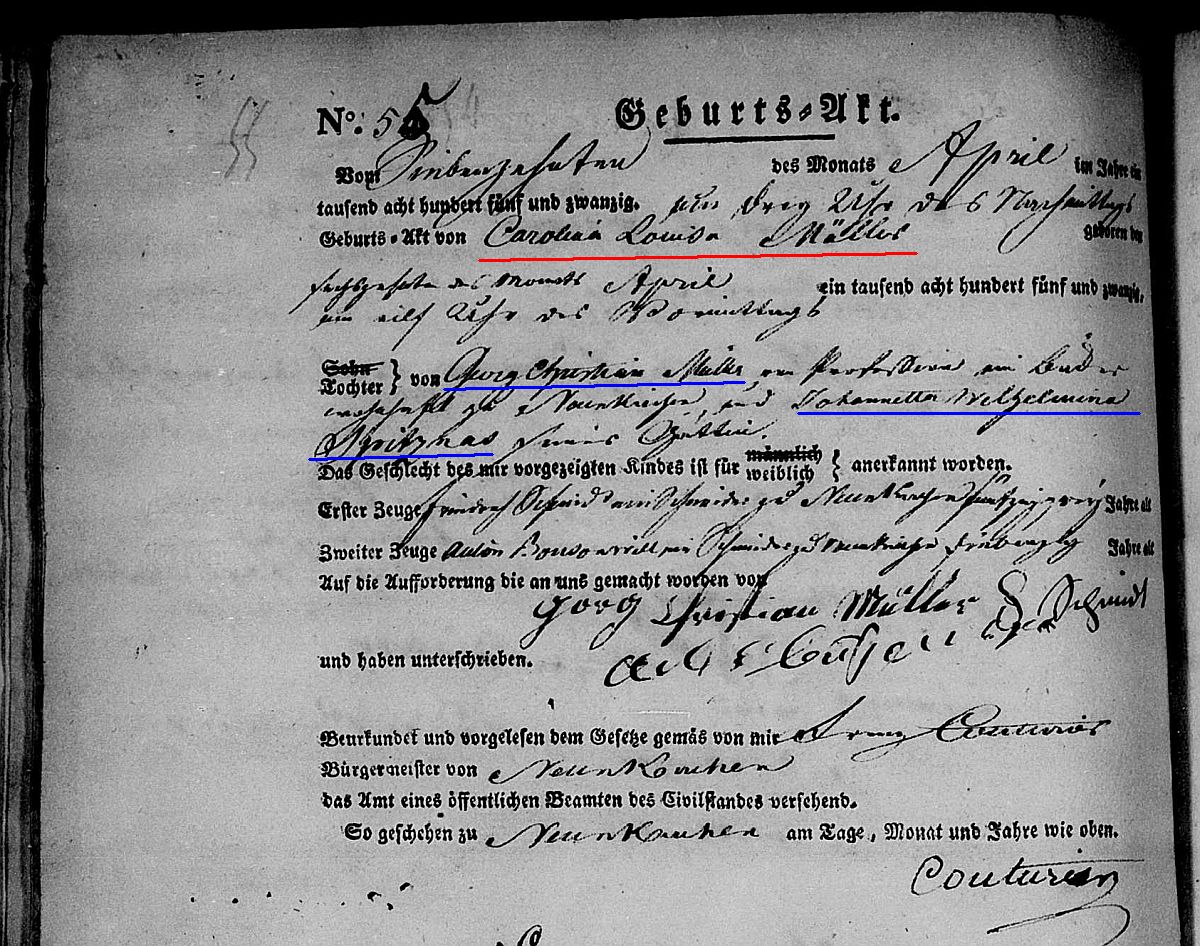 Geburts-Akt.
No. 55
Vom Siebenzehnten des Monats April im Jahre ein
tausend acht hundert fünf und zwanzig. um drey Uhr des Nachmittags
Geburts-Akt von Carolina Louisa Müller geboren den
sechszehnten des Monats April ein tausend acht hundert fünf und zwanzig,
um eilf Uhr des Vormittags
Sohn
Tochter } von Georg Christian Müller, Profession ein
wohnhaft zu Neunkirchen, und Johannetta Wilhelmina
seiner Gattin.
Das Geschlecht des mir vorgezeigten Kindes ist für männlich
weiblich } anerkannt worden.
Erster Zeuge Friedrich Schmid ein Schneider zu Neunkirchen Jahre alt
Zweiter Zeuge Anton ein zu Neunkirchen Jahre alt
Auf die Aufforderung die an uns gemacht worden von
Georg Christian Müller Schmidt
und haben unterschrieben.
Beurkundet und vorgelesen dem Gesetze gemäs von mir Franz Couturier
Bürgermeister von Neunkirchen
das Amt eines öffentlichen Beamten des Civilstandes versehend.
So geschehen zu Neunkirchen am Tage, Monat und Jahre wie oben.
Couturier